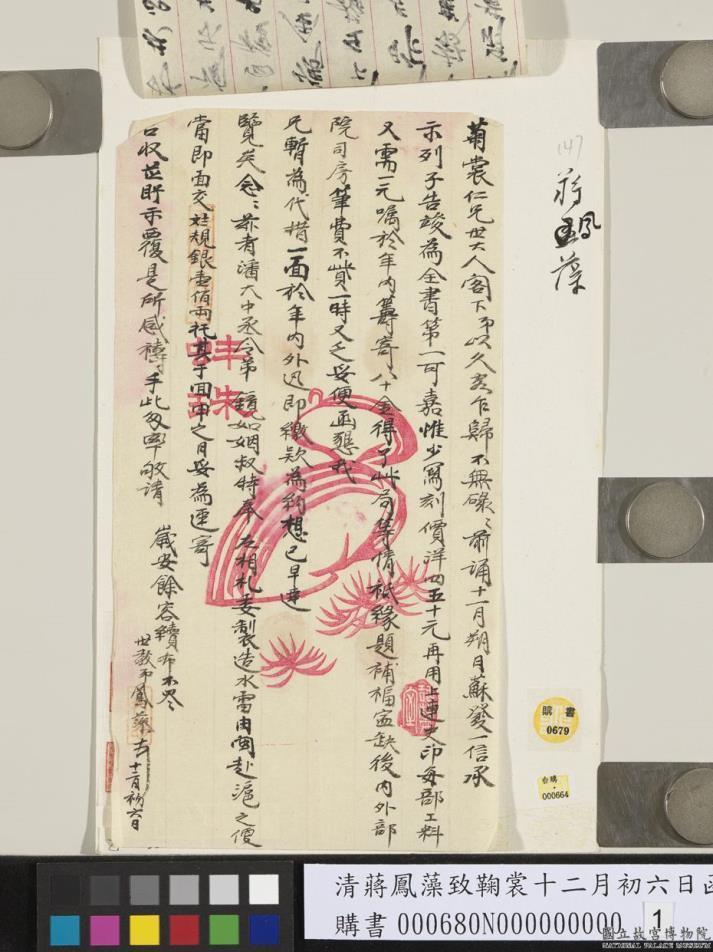 菊裳仁兄世大人閣下弟以久客乍歸不無碌碌前誦十一月朔日蘇發一信承
示列子告竣為全書第一可嘉惟少寫刻價洋四五十元再用上連史印每部工料
又需一元囑於年內籌寄八十金得了此局等情祗緣題補福寧缺後內外部
院司房筆費不貲一時又乏妥便函懇我
兄暫為代措一面於年內外迅即繳款為約想已早達
覽矣念念前者潘大中丞令弟鏡如姻叔特奉左相札委製造水雷由閩赴滬之便
當即面交規銀壹佰兩托其于回申之日妥為速寄
台收並盻示覆是所感禱手此匆率敬請
歲安餘容續布不盡
世教弟鳳藻頓
十二月初六日
147
蔣鳳藻
購書
0679
台購
000664
清蔣鳳藻致鞠裳十二月初六日函
購書 000680N000000000 1
國立故宮博物院
NATIONAL PALACE MUSEUM